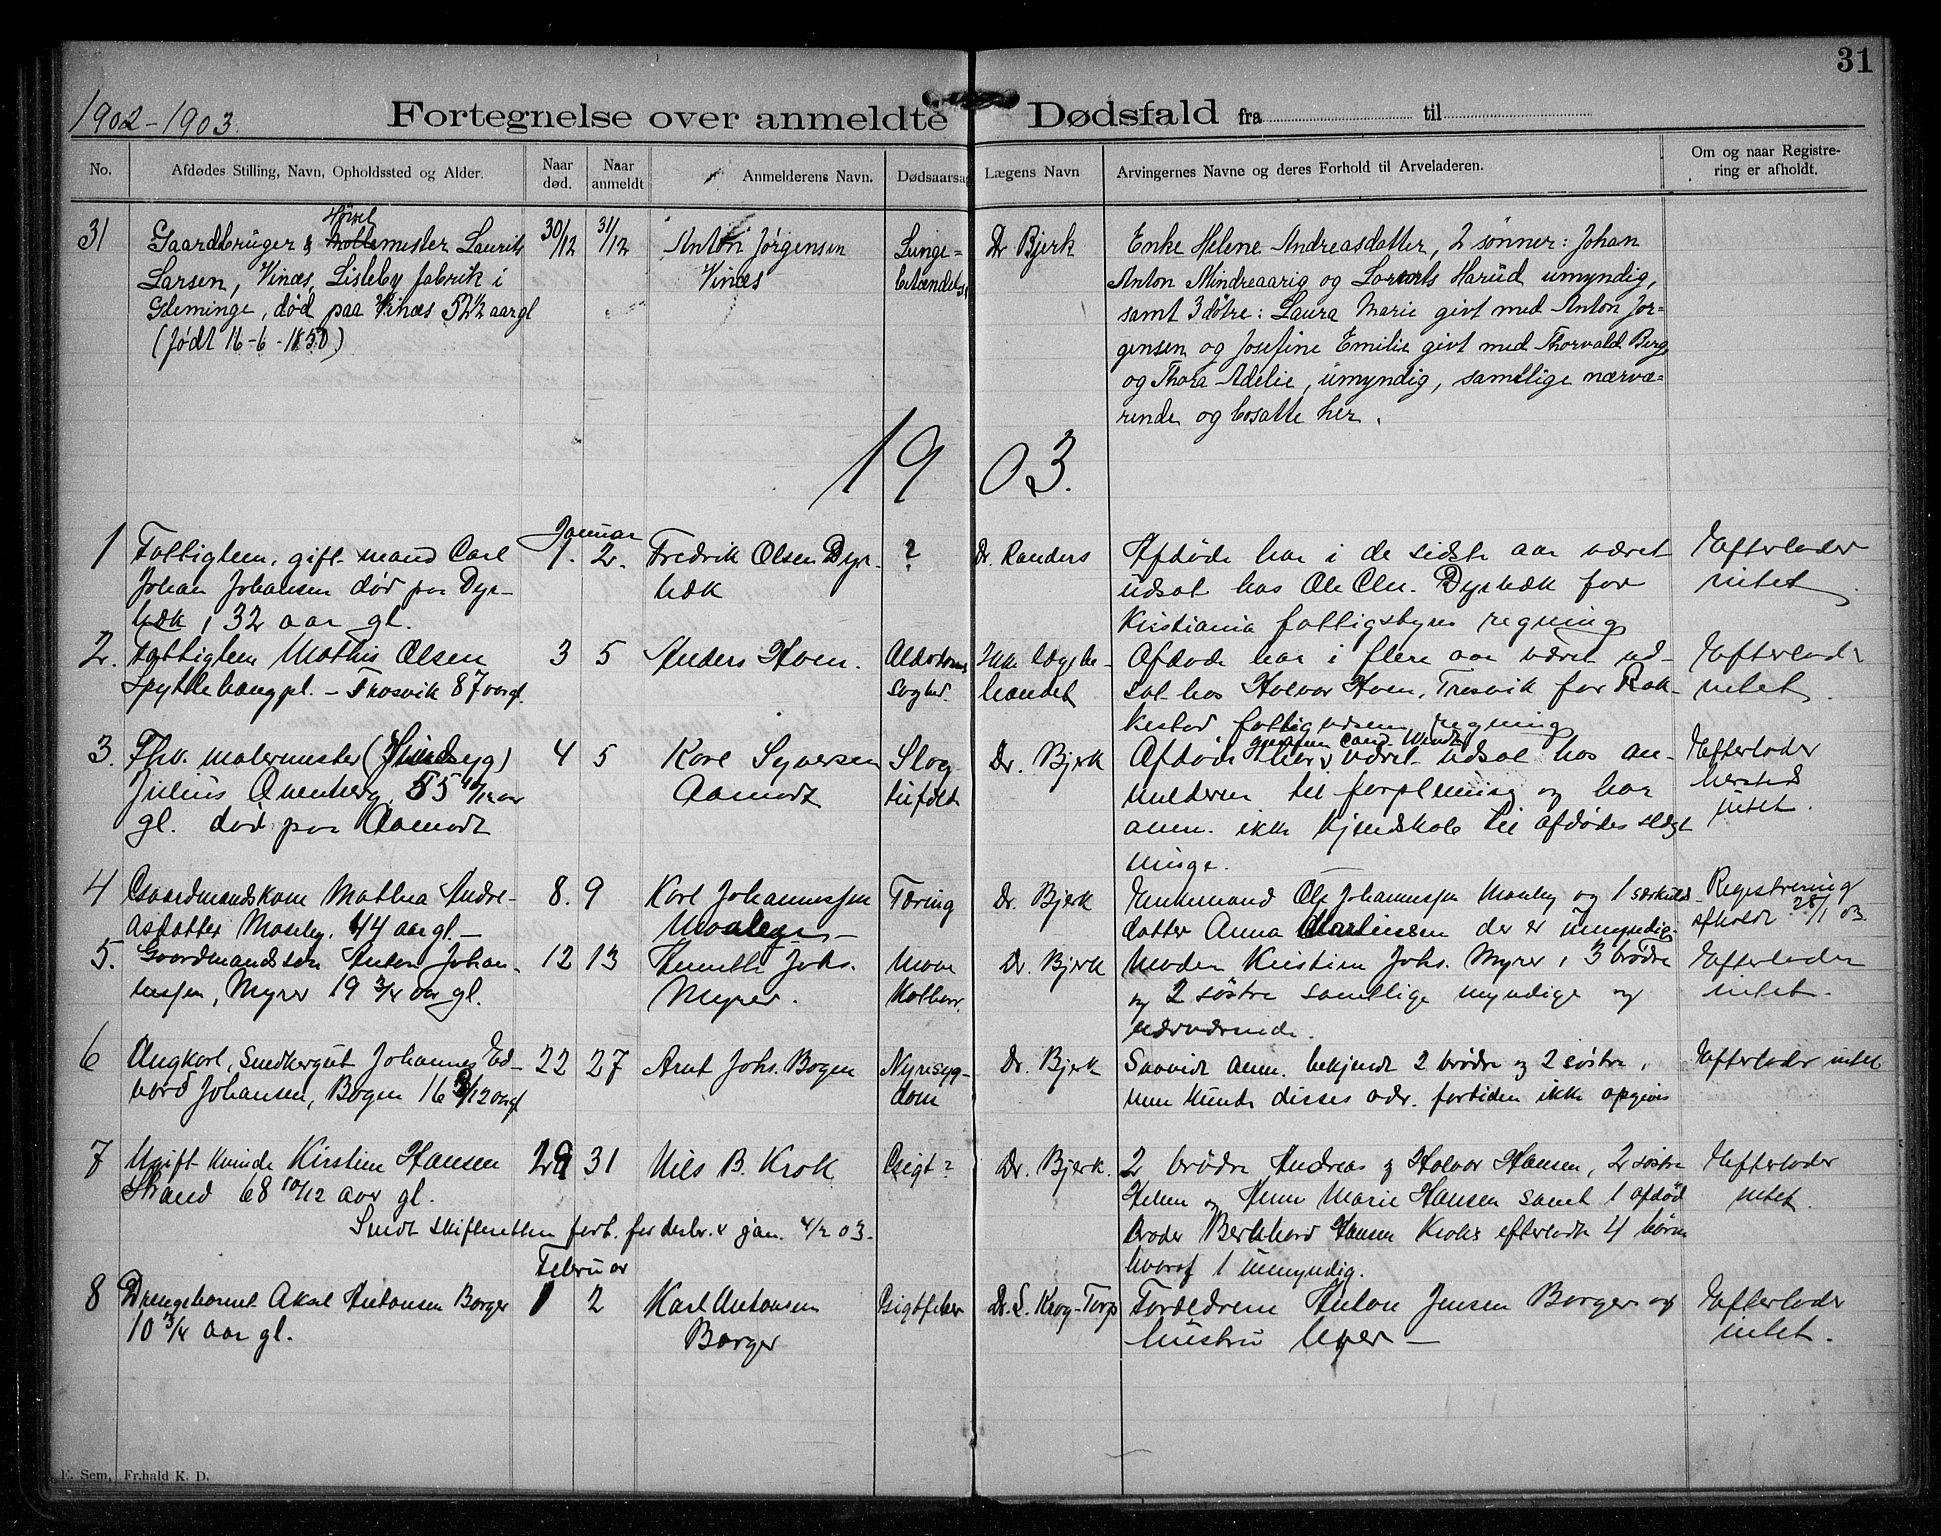 31
1902-1903.
Fortegnelse over anmeldte Dødsfald fra til
No.
Afdødes Stilling, Navn, Opholdssted og Alder.
Naar død.
Naar anmeldt
Anmelderens Navn.
Dødsaarsag
Lægens Navn
Arvingernes Navne og deres Forhold til Arveladeren.
Om og naar Registre-
ring er afholdt.
31
Høvel
Gaardbruger & mester Laurits
Larsen, Vinæs, Lisleby fabrik i
Gleminge, død paa Vinæs 52½ aar gl
(født 16-6-1850)
30/12
31/12
Anton Jørgensen
Vinæs
Lunge=
betændelse
Dr Bjerk
Enke Helene Andreasdatter, 2 sønner: Johan
Anton Mindreaarig og Harud umyndig,
samt 3 døtre: Laura Marie givt med Anton Jør=
gensen og Josefine Emilie givt med Thorvald Berg
og Thora Adelie, umyndig, samtlige nærvæ=
rende og bosatte her.
1903.
Januar
1
Fattiglem, gift mand Carl
Johan Johansen død paa Dyr-
bæk, 32 aar gl.
1.
2.
Fredrik Olsen Dyr-
bæk
?
Dr. Randers
Afdøde har i de sidste aar været
udsat hos Ole Dyrbæk for
Kristiania fattigstyres regning
Efterlader
intet.
2.
Fattiglem Mathis Olsen
pl. - Trosvik 87 aar gl.
3
5
Anders Hoen.
Alderdoms
svaghed.
Ikke lægebe-
handlet
Afdøde har i flere aar været ud-
sat hos Halvor Hoen, Trosvik for Rak-
kestad fattigvæsens regning
Efterlader
intet.
3.
Fhv. malermester (Sindsyg)
Julius Qvenberg, 55 10/12 aar
gl. død paa Aamodt
4
5
Karl Syversen
Aamodt
Slag
tilfælde
Dr. Bjerk
gjennem Cand.
Afdøde har været udsat hos an-
melderen til forpleining og har
anm. ikke kjendskab til afdødes slægt
ninge.
Efterlader
hersteds
intet.
4
Gaardmandskone Mathea Andre-
asdatter Moseby, 44 aar gl. -
8.
9
Karl Johannessen
Tæring
Dr. Bjerk
Enkemand Ole Johannessen og 1 særkuld
datter Anna Martinsen der er umyndig
Registrering
afholdt 28/1 03
5.
Gaardmandssøn Anton Johan-
nessen, Myrer 19 3/4 aar gl.
12
13
Johs.
Myrer.
Mave
Katharr.
Dr. Bjerk
Moder Kristine Johs. Myrer, 3 brødre
og 2 søstre samtlige myndige og
nærværende.
Efterlader
intet.
6
Ungkarl, Snedkergut Johannes Ed-
vard Johansen, Bogen 16 /12 aar gl
22
27
Arnt Johs. Bogen
Nyresyg-
dom
Dr. Bjerk
Saavidt anm. bekjendt 2 brødre og 2 søstre,
men kunde disses adr. fortiden ikke opgives
Efterlader intet
7
Ugift kvinde Kirstine Hansen
Strand 68 10/12 aar gl.
29
31
Nils B. Krok
Gigt?
Dr. Bjerk.
2 brødre Andreas & Halvor Hansen, 2 søstre
Helene og Anne Marie Hansen samt 1 afdød
broder Bernhard Hansen Kroks efterladte 4 børn
hvoraf 1 umyndig.
Efterlader
intet.
Sendt skifteretten fort. for desbr. & jan. 4/2 03.
Februar
8
Drengebarnet Aksel Antonsen Borger
10 3/4 aar gl.
1
2
Karl Antonsen
Borger
Gigtfeber
Dr. S. Krog-Torp
Forældrene Anton Jensen Borger og
hustru
Efterlader
intet.
E. Sem, Fr.hald K. D.